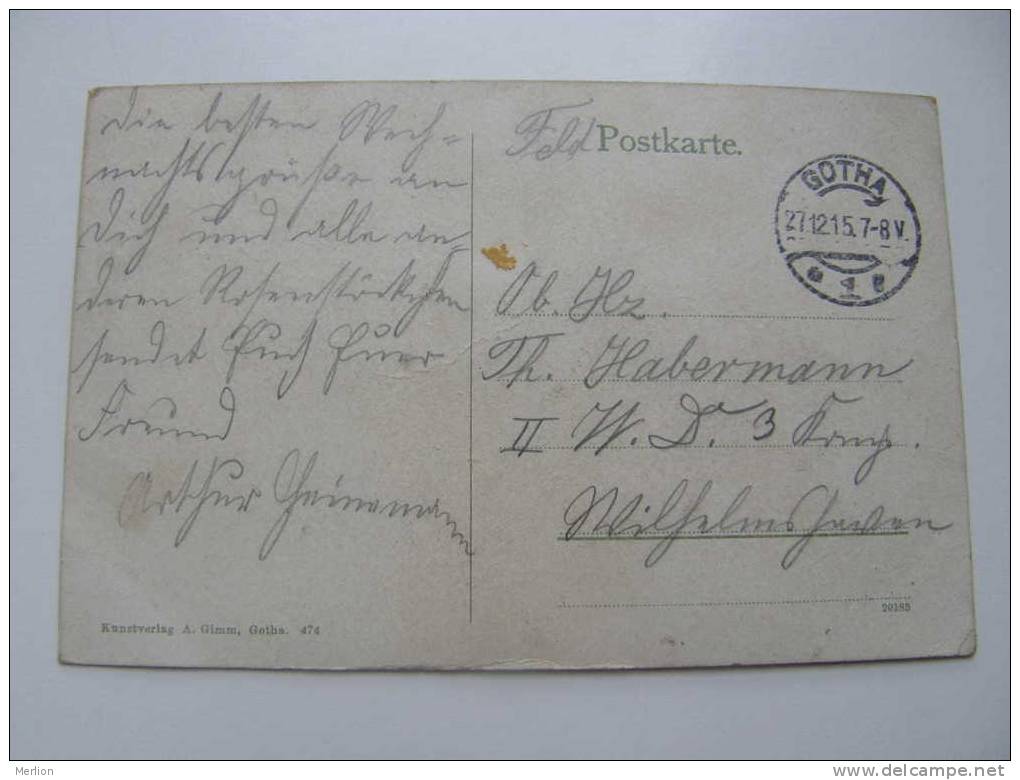 Die besten Weih-
nachtsgrüße an
Dich und alle an-
deren Rosenstöckchen
sendet Euch Euer
Freund
Arthur
Kunstverlag A. Gimm, Gotha. 474
Feld Postkarte.
GOTHA
27.12.15. 7-8 V.
1
Ob. Hz.
Th. Habermann
II W. D. 3 Komp.
Wilhelmshaven
20185
Merlion
www.delcampe.net